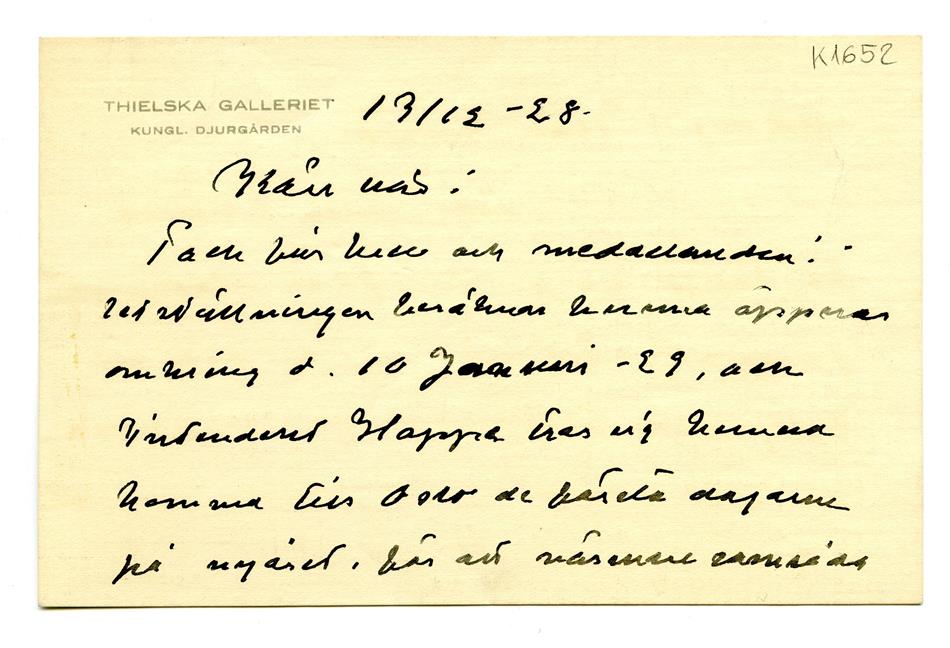 K1652
THIELSKA GALLERIET
KUNGL. DJURGÅRDEN
13/12 -28.
Kära vän!
Tack för brev och meddelanden!
Utställningen beräknas kunna öppnas
omkring d. 10 Januari -29, och
Intendent Hoppe tror sig kunna
komma till Oslo de första dagarne
på nyåret, för att närmare samråda